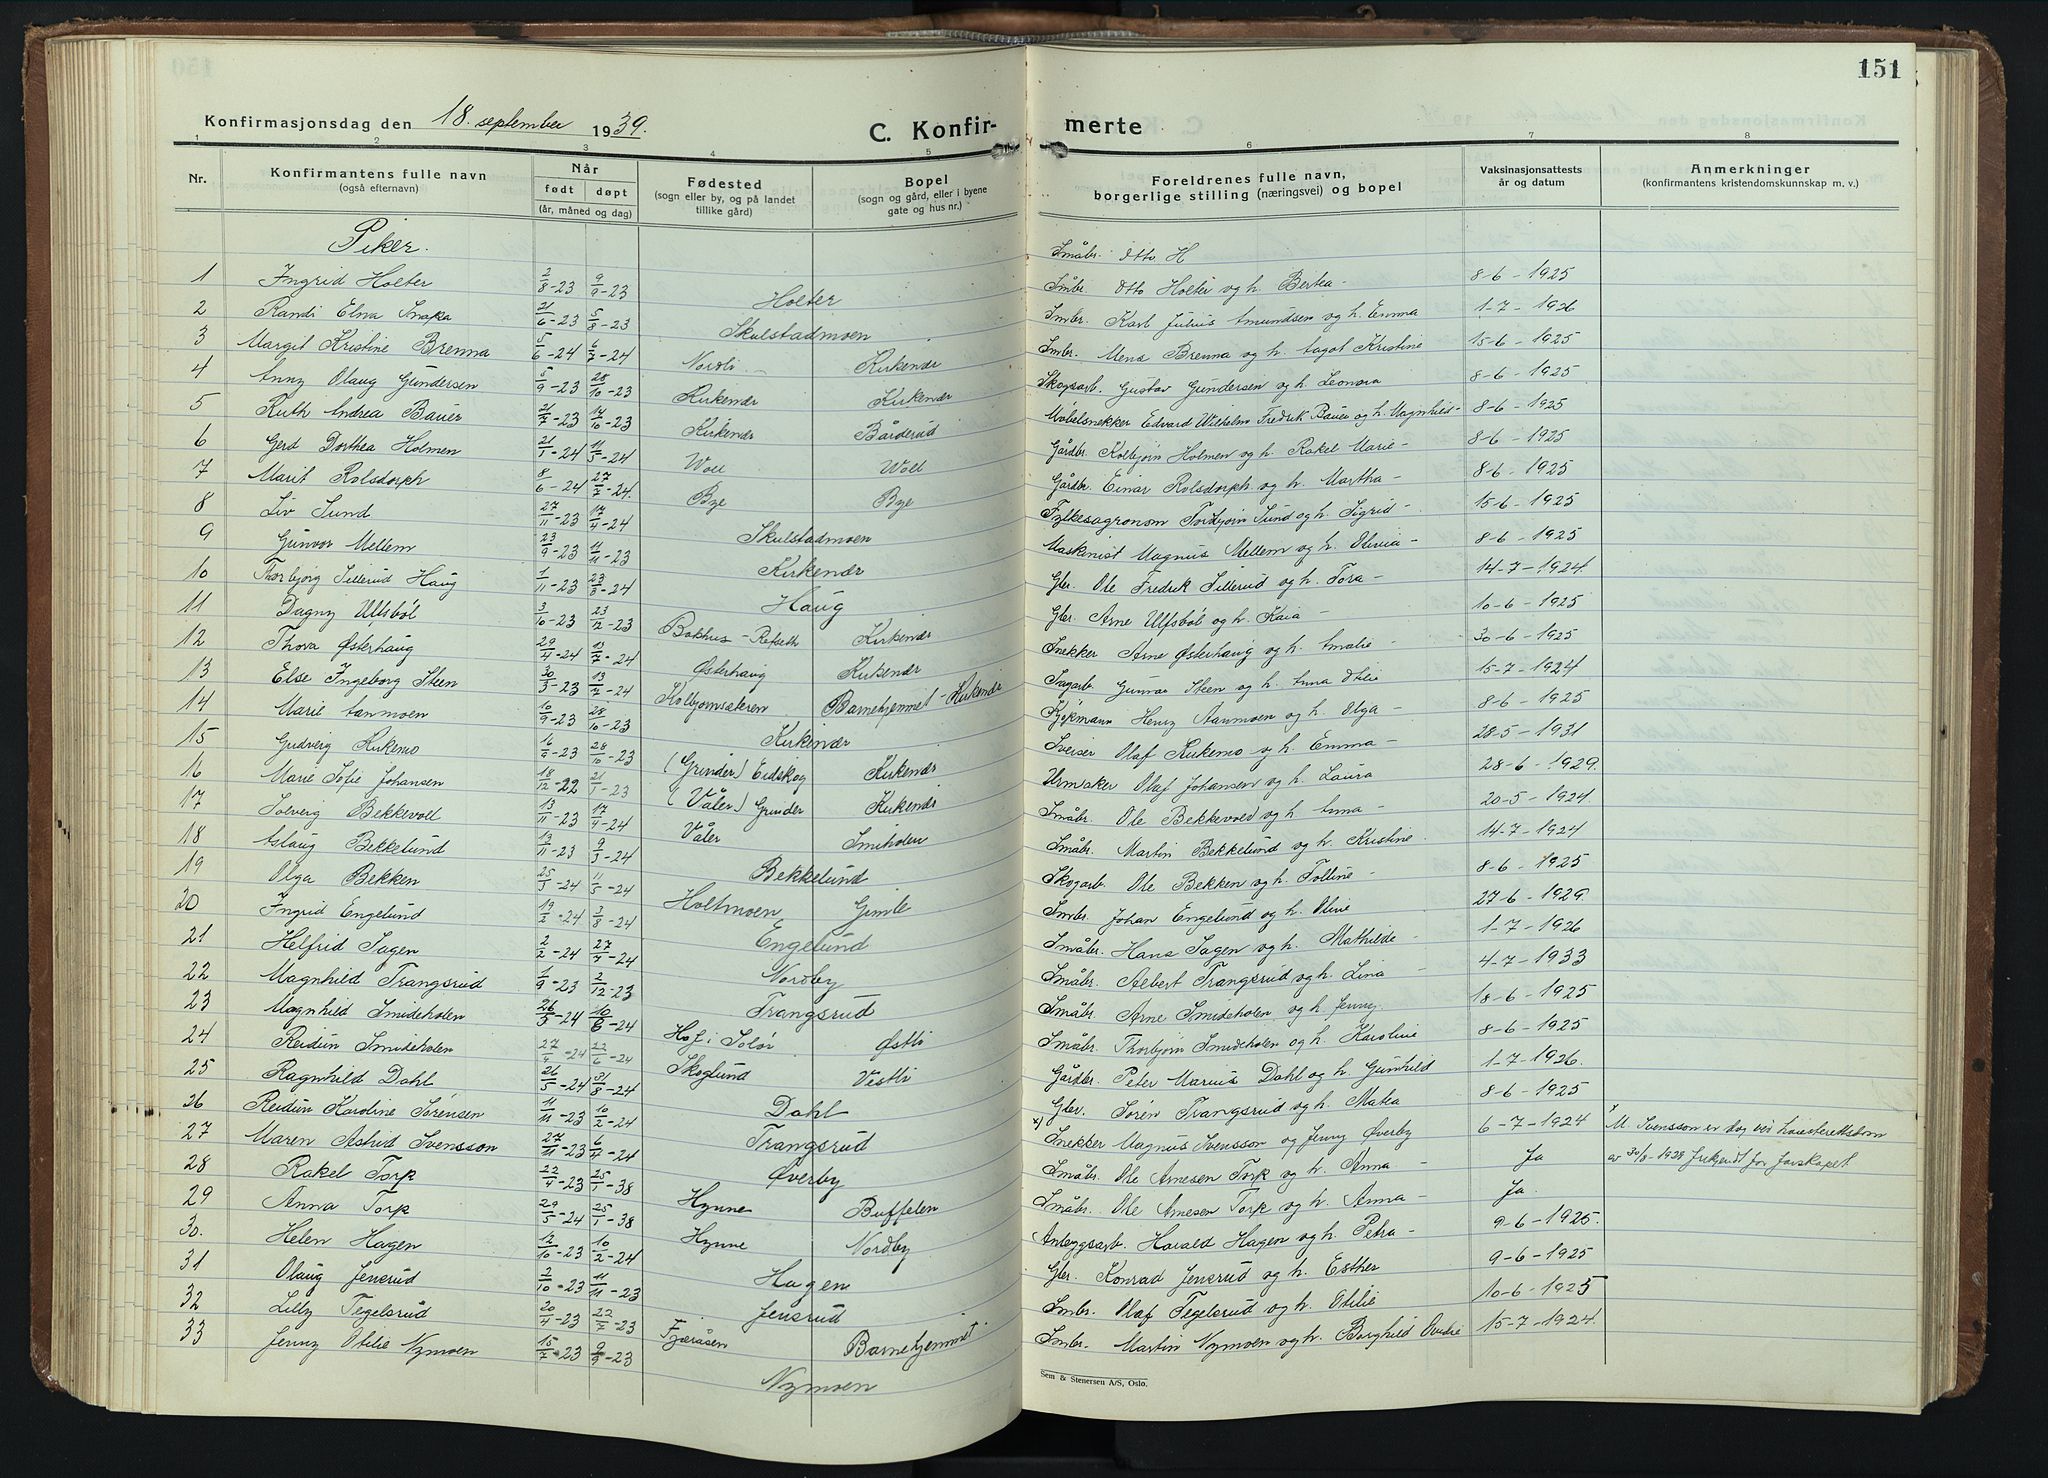 151
Konfirmasjonsdag den 18. september 1939.
C. Konfir- merte
1 2 3 4 5 6 7 8
Nr.
Konfirmantens fulle navn
(også efternavn)
Når
født døpt
(år, måned og dag)
Fødested
(sogn eller by, og på landet
tillike gård)
Bopel
(sogn og gård, eller i byene
gate og hus nr.)
Foreldrenes fulle navn,
borgerlige stilling (næringsvei) og bopel
Vaksinasjonsattests
år og datum
Anmerkninger
(konfirmantens kristendomskunnskap m. v.)
Piker.
Småbr. Otto H
1 Ingrid Holter 2/8-23 9/9-23 Holter Smbr. Otto Holter og h. Bertea- 8-6-1925
2 Randi Elna 21/6-23 5/8-23 Skulstadmoen Smbr. Karl Julius Amundsen og h. Emma 1-7-1926
3 Margit Kristine Brenna 5/6-24 6/7-24 Norli Kirkenær Smbr. Brenna og h. Aagot Kristine 15-6-1925
4 Anny Olaug Gundersen 5/9-23 28/10-23 Kirkenær Kirkenær Skogsarb. Gustav Gundersen og h. Leonora 8-6-1925
5 Ruth Andrea Bauer 21/7-23 14/10-23 Kirkenær Bårderud Møbelsnekker Edvard Wilhelm Fredrik Bauer og h. Magnhild- 8-6-1925
6 Gerd Dorthea Holmen 21/1-24 11/5-24 Woll Woll Gårdbr. Kolbjørn Holmen og h. Rakel Marie- 8-6-1925
7 Marit Rolsdorph 8/6-24 27/7-24. Bye Bye Gårdbr. Einar Rolsdorph og h. Martha- 8-6-1925
8 Liv Sund 27/11-23 17/4-24 Skulstadmoen Fylkesagronom Torbjørn Sund og h. Sigrid- 15-6-1925
9 Gunvor Mellem 23/9-23 11/11-23 Kirkenær Maskinist Magnus Mellem og h. Olivia- 8-6-1925
10 Thorbjørg Sillerud Haug 1/11-23 23/3-24 Haug Gbr. Ole Fredrik Sillerud og h. Tora- 14-7-1924.
11 Dagny Ulfsbøl 3/10-23 23/12-23 Bakhus-Refseth Kirkenær Gbr. Arne Ulfsbøl og h. Kaia- 10-6-1925
12 Thora Østerhaug 29/4-24 13/7-24 Østerhaug Kirkenær Snekker Arne Østerhaug og h. Amalie- 30-6-1925
13 Else Ingeborg Steen 30/3-23 13/7-24 Kolbjørnsæteren Barnehjemmet-Kirkenær Sagarb. Gunnar Steen og h. Anna Otilie 15-7-1924
14 Marie Aanmoen 10/9-23 28/10-23 Kirkenær Kjøpmann Henry Aanmoen og h. Olga- 8-6-1925
15 Gudveig Kirkemo 16/9-23 28/10-23 (Grinder) Eidskog Kirkenær Sveiser Olaf Kirkemo og h. Emma- 28-5-1931
16 Marie Sofie Johansen 18/12-22 21/1-23 (Våler) Grinder Kirkenær Urmaker Olaf Johansen og h. Laura 28-6-1929.
17 Solveig Bekkevoll 13/11-23 17/4-24 Våler Smiholen Småbr. Ole Bekkevold og h. Anna- 20-5-1924.
18 Aslaug Bekkelund 13/11-23 9/3-24 Bekkelund Småbr. Martin Bekkelund og h. Kristine. 14-7-1924
19 Olga Bekken 25/3-24 11/5-24 Holtmoen Gimle Skogarb. Ole Bekken og h. Tolline- 8-6-1925
20 Ingrid Engelund 19/2-24 3/8-24 Engelund Smbr. Johan Engelund og h. Oline 27-6-1929.
21 Helfrid Sagen 2/2-24 27/4-24 Nordby Småbr. Hans Sagen og h. Mathilde- 1-7-1926
22 Magnhild Trangsrud 1/9-23 2/12-23 Trangsrud Småbr. Albert Trangsrud og h. Lina- 4-7-1933
23 Magnhild Smideholen 26/3-24 10/6-24 Hof i Solør Østli Småbr. Arne Smideholen og h. Jenny. 18-6-1925
24 Reidun Smideholen 27/4-24 22/6-24 Skoglund Vestli Småbr. Thorbjørn Smideholen og h. Karoline 8-6-1925
25 Ragnhild Dahl 26/5-24 31/8-24 Dahl Gårdbr. Peter Marius Dahl og h. Gunhild 1-7-1926.
26 Reidun Karoline Sørensen 11/11-23 10/2-24 Trangsrud Gbr. Søren Trangsrud og h. Matea 8-6-1925
27 Maren Astrid Svensson 27/11-23 6/4-24 Øverby x) Snekker Magnus Svensson og Jenny Øverby 6-7-1924 x M. Svensson er dog ved høiesterettsdom
av 30/8-1928 frikjendt for farskapet
28 Rakel Torp 22/4-23 25/1-38 Hynne Buffelen Småbr. Ole Arnesen Torp og h. Anna- Ja
29 Anna Torp 29/5-24 25/1-38 Hynne Nordby Småbr. Ole Arnesen Torp og h. Anna- Ja.
30. Helen Hagen 12/10-23 10/2-24 Hagen Anleggsarb. Harald Hagen og h. Petra- 9-6-1925.
31 Olaug Jensrud 2/10-23 11/11-23 Jensrud Gbr. Konrad Jensrud og h. Esther 9-6-1925
32 Lilly Tegelsrud 20/4-23 22/7-23 Fjæråsen Barnehjemmet Smbr. Olaf Tegelsrud og h. Otilie 10-6-1925
33 Jenny Otilie Nymoen 15/7-23 9/9-23 Nymoen Smbr. Martin Nymoen og h. Borghild 15-7-1924.
Sem & Stenersen A/S, Oslo.